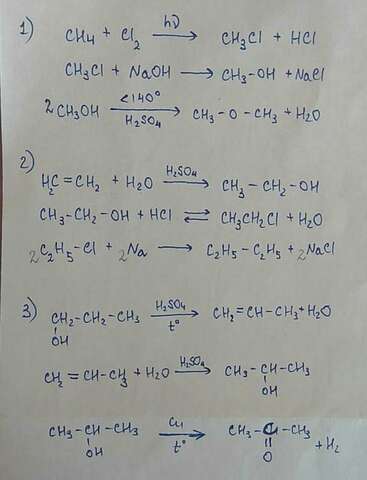 1) CH4 + Cl2 →(hν) CH3Cl + HCl
CH3Cl + NaOH → CH3-OH + NaCl
2CH3OH →(<140°, H2SO4) CH3-O-CH3 + H2O
2) H2C=CH2 + H2O →(H2SO4) CH3-CH2-OH
CH3-CH2-OH + HCl ⇌ CH3CH2Cl + H2O
2C2H5-Cl + 2Na → C2H5-C2H5 + 2NaCl
3) CH2-CH2-CH3 →(H2SO4, t°) CH2=CH-CH3+H2O
OH
CH2=CH-CH3 + H2O →(H2SO4) CH3-CH-CH3
OH
CH3-CH-CH3 →(Cu, t°) CH3-C-CH3 + H2
OH O